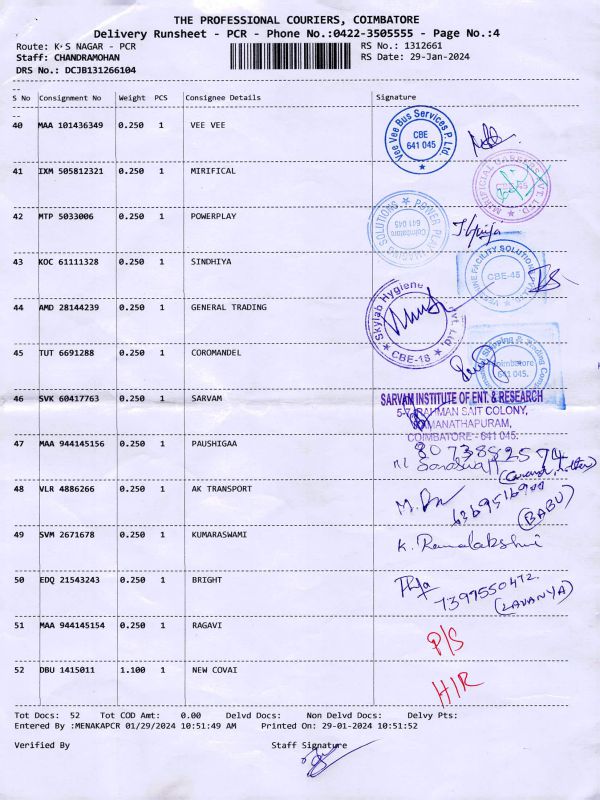 THE PROFESSIONAL COURIERS, COIMBATORE
Delivery Runsheet - PCR - Phone No.:0422-3505555 - Page No.:4
Route: K·S NAGAR - PCR
RS No.: 1312661
Staff: CHANDRAMOHAN
RS Date: 29-Jan-2024
DRS No.: DCJB131266104
S No Consignment No Weight PCS Consignee Details Signature
40 MAA 101436349 0.250 1 VEE VEE
Vee Vee Bus Services P. Ltd.
CBE
641 045
41 IXM 505812321 0.250 1 MIRIFICAL
42 MTP 5033006 0.250 1 POWERPLAY
Coimbatore
641 045
43 KOC 61111328 0.250 1 SINDHIYA
FACILITY SOLUTION
CBE-45
44 AMD 28144239 0.250 1 GENERAL TRADING
Skylab Hygiene Pvt. Ltd.
CBE-18
45 TUT 6691288 0.250 1 COROMANDEL
Shipping & Trading
Coimbatore
641 045.
46 SVK 60417763 0.250 1 SARVAM
SARVAM INSTITUTE OF ENT. & RESEARCH
RAHMAN SAIT COLONY,
COIMBATORE - 641 045.
47 MAA 944145156 0.250 1 PAUSHIGAA
48 VLR 4886266 0.250 1 AK TRANSPORT
(BABU)
49 SVM 2671678 0.250 1 KUMARASWAMI
K. Ramalakshmi
50 EDQ 21543243 0.250 1 BRIGHT
7397550472.
(LAVANYA)
51 MAA 944145154 0.250 1 RAGAVI
P/S
52 DBU 1415011 1.100 1 NEW COVAI
H/R
Tot Docs: 52 Tot COD Amt: 0.00 Delvd Docs: Non Delvd Docs: Delvy Pts:
Entered By :MENAKAPCR 01/29/2024 10:51:49 AM Printed On: 29-01-2024 10:51:52
Verified By Staff Signature